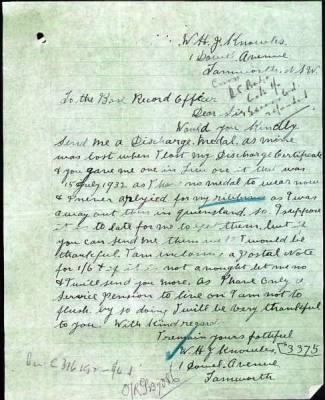 W. H. J. Knowles
1 Dowel Avenue
Tamworth. N.S.W.
To the Base Record Officer
Dear Sir
Would you Kindly
Send me a Discharge. Medal, as mine
was lost when I lost my Discharge Certificate
& you gave me one in lieu of it that was
15 July 1932 as I have no medal to wear now
& I never applyed for my ribbons as I was
away out then in queensland. so. I suppose
it is to late for me to get them, but if
you can send me them I would be
thankful. I am enclosing a Postal Note
for 1/6 & if it is not a nought let me no
& I will send you more. As I have only a
Service Pension to live on I am not to
flush by so doing I will be very thankful
to you. With Kind regards
I remain yours faithful
W H J Knowles. 3375
1 Dowel. Avenue
Tamworth